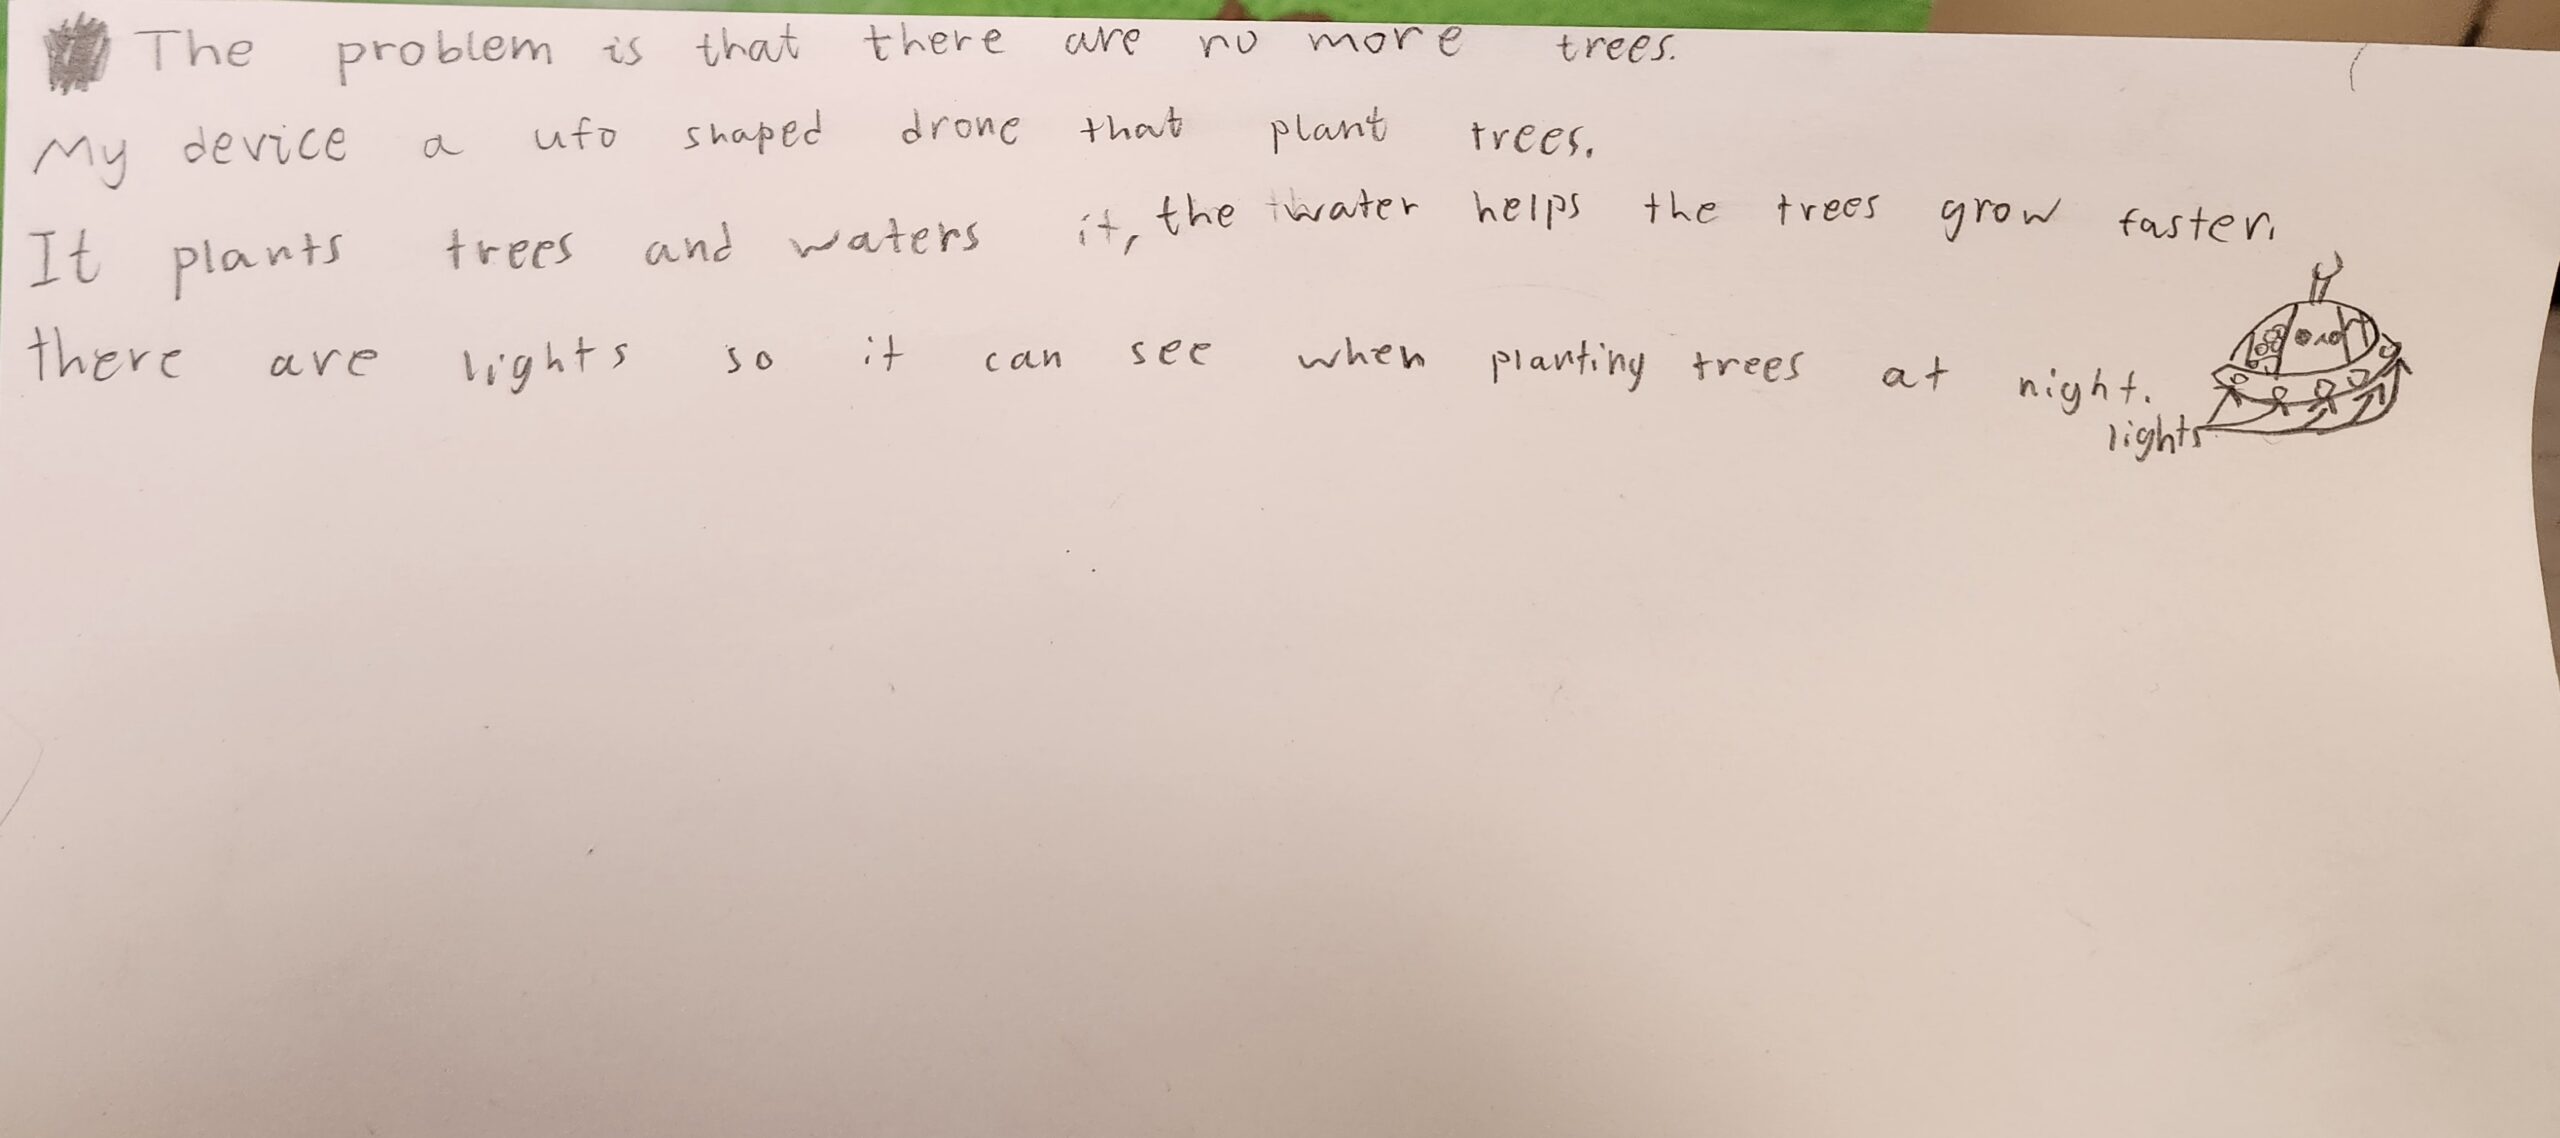 The problem is that there are no more trees.
My device a ufo shaped drone that plant trees.
It plants trees and waters it, the water helps the trees grow faster.
there are lights so it can see when planting trees at night.
lights